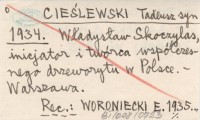 CIEŚLEWSKI Tadeusz syn
1934. Władysław Skoczylas,
inicjator i twórca współczes-
nego drzeworytu w Polsce. –
Warszawa.
Rec.: WORONIECKI E. 1935...